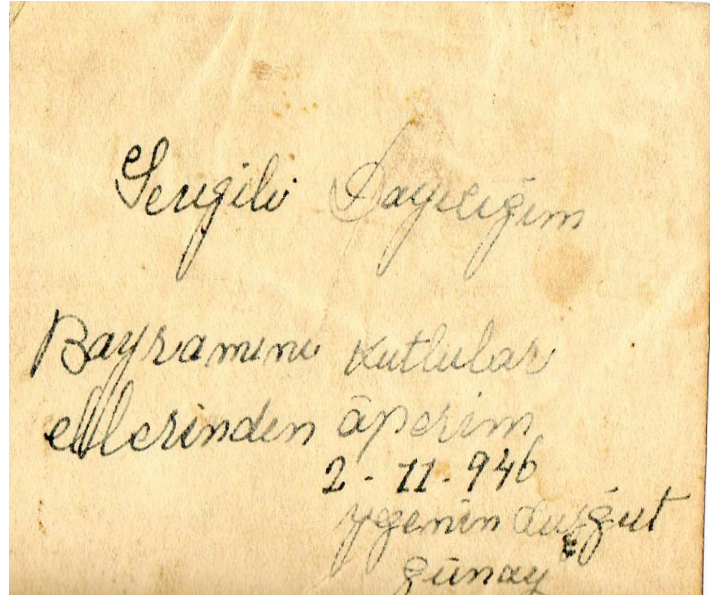 Sevgili Dayıcığım
Bayramını kutlular
ellerinden öperim
2-11-946
yegenin Turgut
Günay